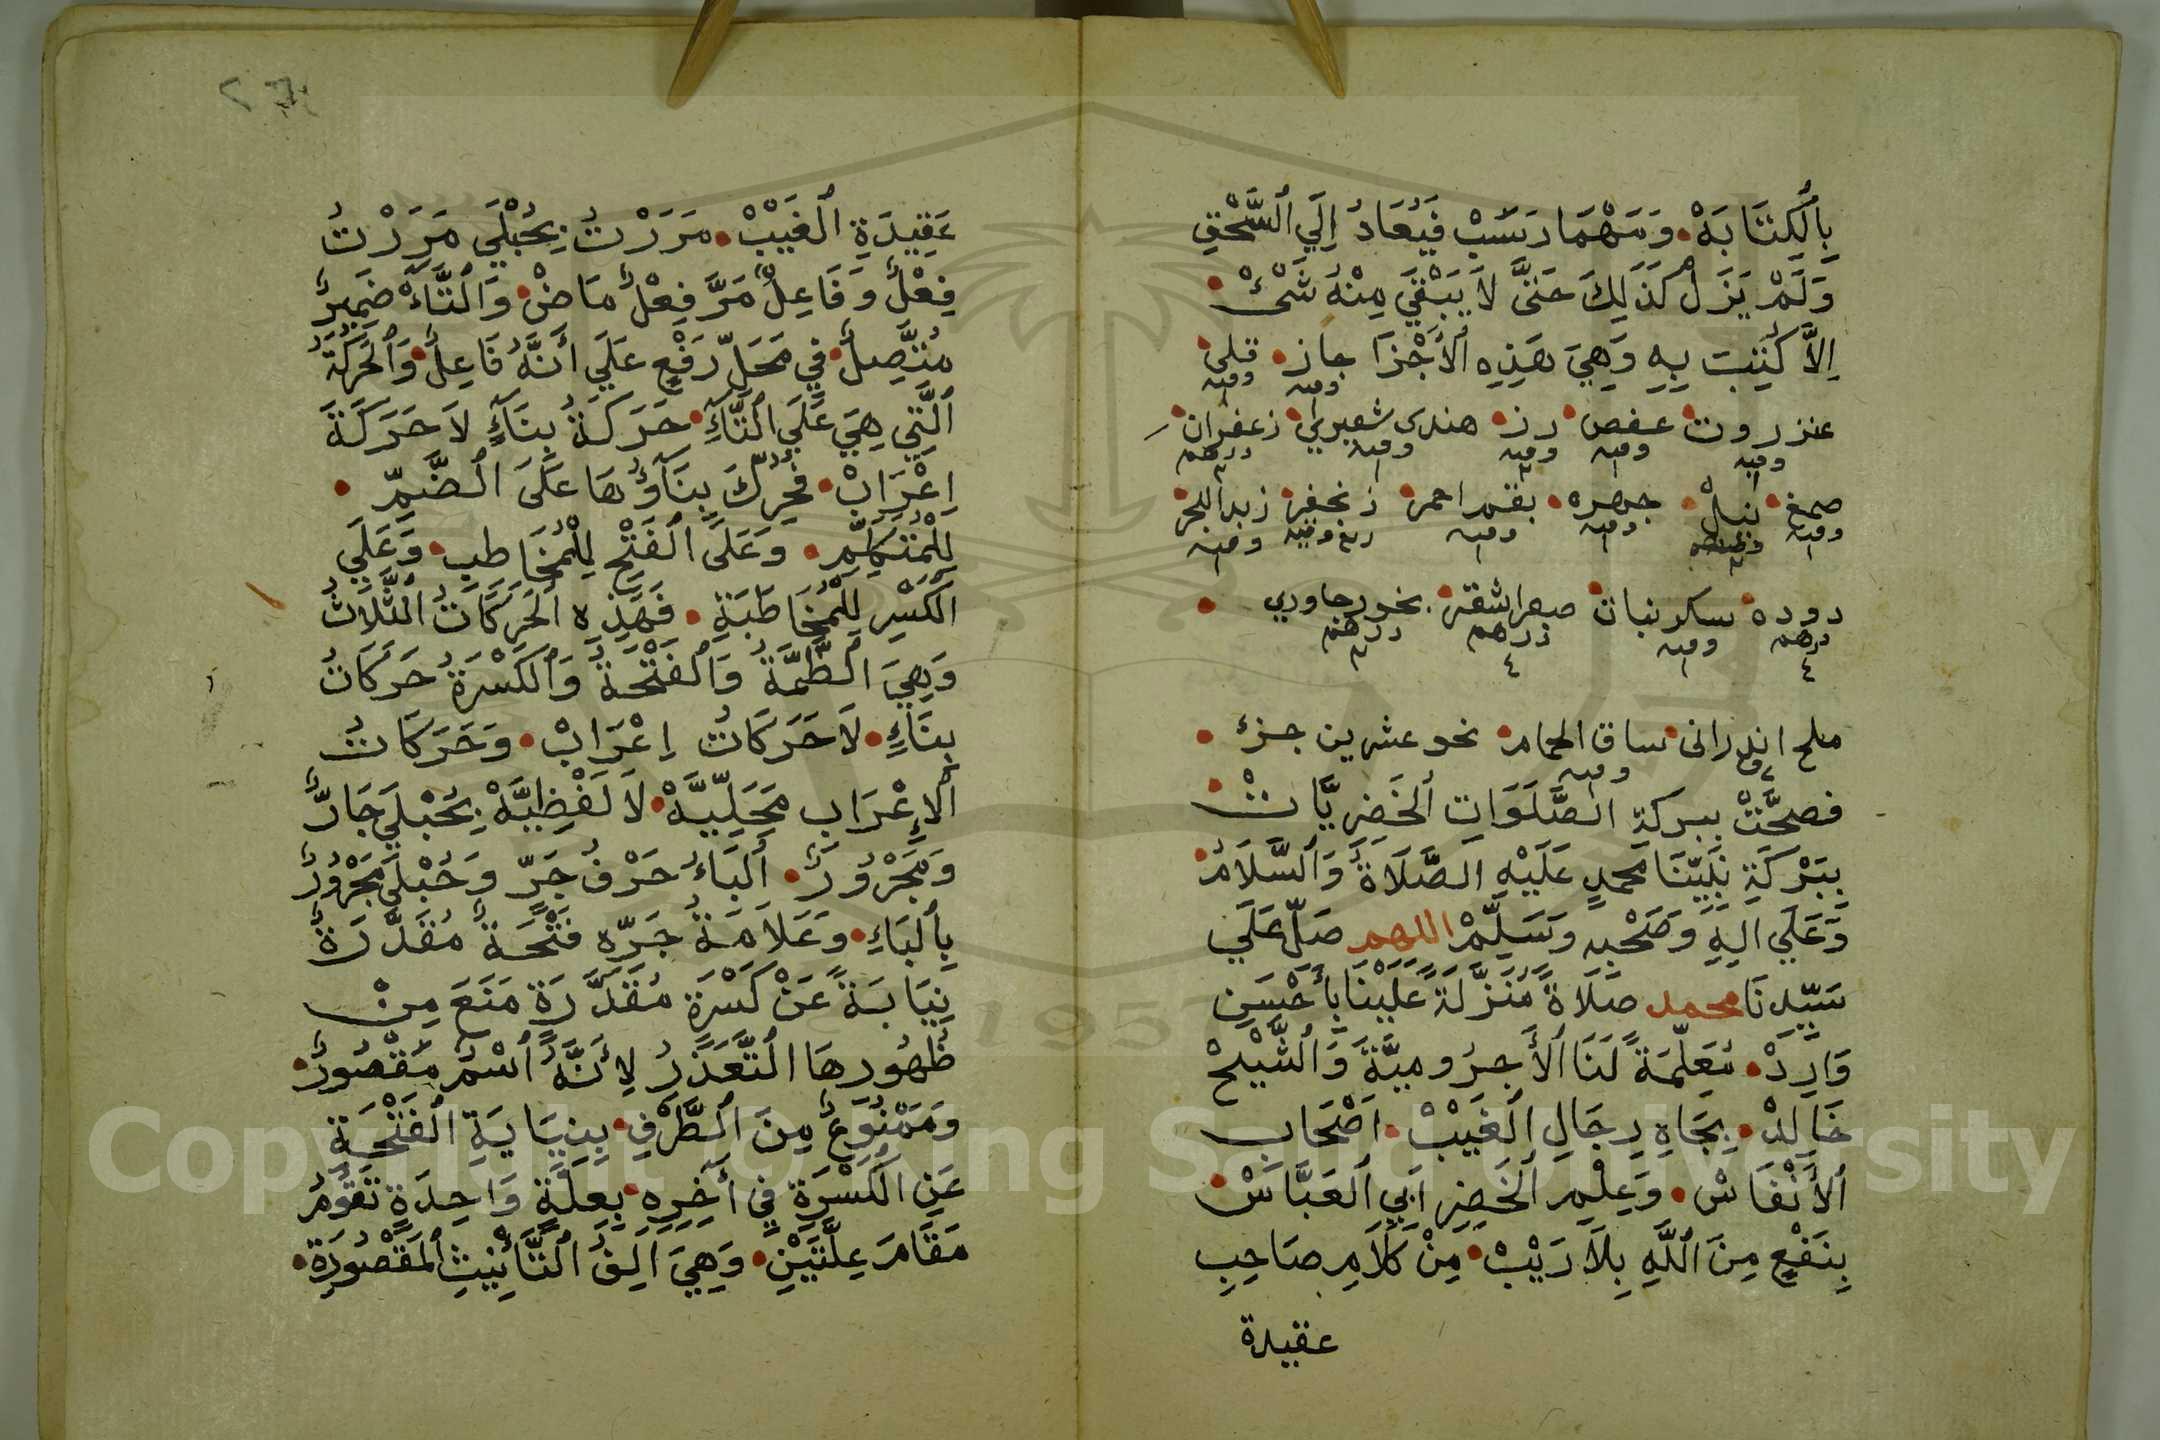 بِالْكِتَابَةْ وَمَهْمَا رَسَبْ فَيُعَادُ إِلَي السَّحْقِ
وَلَمْ يَزَلْ كَذَلِكَ حَتَّي لَا يَبْقَي مِنْهُ شَيْئْ
اِلَّا كُتِبَ بِهِ وَهِيَ هَذِهِ الْأَجْزَا جاز قلي
وقيه وقيه
عنزروت عفص رز هندي شعيري زعفران
وقيه وقيه وقيه وقيه درهم
صمغ نيل جهره بقم احمر زنجفر زبد البحر
وقيه وقيه وقيه ربع وقيه وقيه
دوده سكر نبات صبر اشقر بخور جاوري
درهم ٤ وقيه درهم ٤ درهم
ملح اندراني ساق الحمام نحو عشرين جزء
وقيه
فصحَّتْ ببركة الصَّلَوَاتِ الخَضِرِيَّاتْ
بِبَرْكَةِ نَبِيِّنَا محمدٍ عَلَيْهِ الصَّلَاةُ وَالسَّلَامُ
وَعَلَي الِهِ وَصَحْبِهِ وَسَلِّمْ اللهم صَلِّ عَلَي
سَيِّدِنَا محمد صَلَاةً مُنَزَّلَةً عَلَيْنَا بِأَحْسَنِ
وَارِدْ مُعَلِّمَةً لَنَا الْأَجِرُومِيَّةَ وَالشَّيْخْ
خَالِدْ بِجَاهِ رِجَالِ الْغَيْبْ اَصْحَابِ
الْأَنْفَاسْ وَعِلْمِ الْخَضِرِ اَبِي الْعَبَّاسْ
بِنَفْعٍ مِنَ اللَّهِ بِلَا رَيْبْ مِنْ كَلَامِ صَاحِبِ
عقيدة
عَقِيدَةِ الْغَيْبْ مَرَرْتُ بِحُبْلَي مَرَرْتُ
فِعْلٌ وَفَاعِلٌ مَرَّ فِعْلٌ مَاضْ وَالتَّاءْ ضَمِيرٌ
مُتَّصِلٌ فِي مَحَلِّ رَفْعٍ عَلَي اَنَّهُ فَاعِلٌ وَالْحَرَكَةُ
الَّتِي هِيَ عَلَي التَّاءِ حَرَكَةُ بِنَاءٍ لَا حَرَكَةَ
اِعْرَابْ فَحُرِّكَ بِنَاؤُهَا عَلَي الضَّمِّ
لِلْمُتَكَلِّمِ وَعَلَي الْفَتْحِ لِلْمُخَاطَبِ وَعَلَي
الْكَسْرِ لِلْمُخَاطَبَةِ فَهَذِهِ الْحَرَكَاتُ الثَّلَاثُ
وَهِيَ الضَّمَّةُ وَالْفَتْحَةُ وَالْكَسْرَةُ حَرَكَاتُ
بِنَاءٍ لَا حَرَكَاتُ اِعْرَابْ وَحَرَكَاتُ
الْإِعْرَابِ مَحَلِّيَّهْ لَا لَفْظِيَّهْ بِحُبْلَي جَارٌّ
وَمَجْرُورٌ اَلْبَاءُ حَرْفُ جَرٍّ وَحُبْلَي مَجْرُورٌ
بِالْبَاءِ وَعَلَامَةُ جَرِّهِ فَتْحَةٌ مُقَدَّرَةٌ
نِيَابَةً عَنْ كَسْرَةٍ مُقَدَّرَةٍ مَنَعَ مِنْ
ظُهُورِهَا التَّعَذُّرُ لِاَنَّهُ اسْمٌ مَقْصُورٌ
وَمَمْنُوعٌ مِنَ الصَّرْفِ بِنِيَابَةِ الْفَتْحَةِ
عَنِ الْكَسْرَةِ فِي آخِرِهِ بِعِلَّةٍ وَاحِدَةٍ تَقُومُ
مَقَامَ عِلَّتَيْنِ وَهِيَ اَلِفُ التَّأْنِيثِ الْمَقْصُورَةِ
Copyright © King Saud University
1957